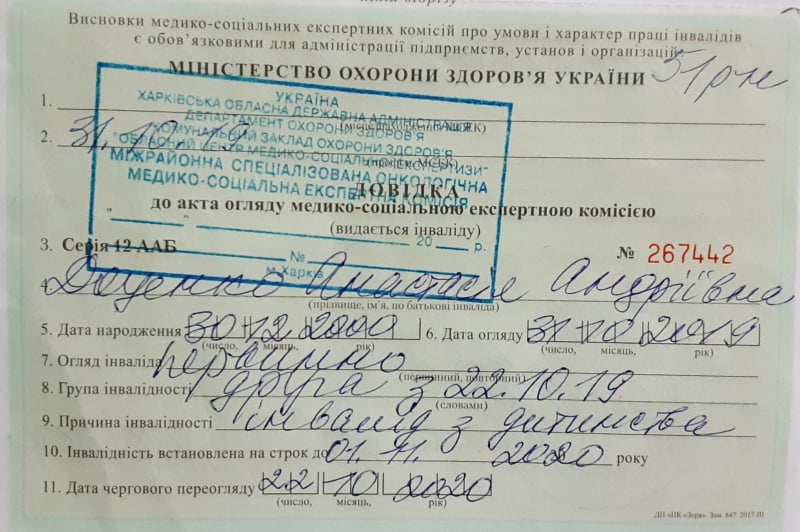 Висновки медико-соціальних експертних комісій про умови і характер праці інвалідів
є обов'язковими для адміністрації підприємств, установ і організацій
МІНІСТЕРСТВО ОХОРОНИ ЗДОРОВ'Я УКРАЇНИ
УКРАЇНА
1.
ХАРКІВСЬКА ОБЛАСНА ДЕРЖАВНА АДМІНІСТРАЦІЯ
ДЕПАРТАМЕНТ ОХОРОНИ ЗДОРОВ'Я
КОМУНАЛЬНИЙ ЗАКЛАД ОХОРОНИ ЗДОРОВ'Я
2.
"ОБЛАСНИЙ ЦЕНТР МЕДИКО-СОЦІАЛЬНОЇ ЕКСПЕРТИЗИ"
МІЖРАЙОННА СПЕЦІАЛІЗОВАНА ОНКОЛОГІЧНА
МЕДИКО-СОЦІАЛЬНА ЕКСПЕРТНА КОМІСІЯ
ДОВІДКА
до акта огляду медико-соціальною експертною комісією
(видається інваліду)
"____"__________ 20__ р.
3. Серія 12 ААБ № 267442
№
м.Харків
4. Доценко Анастасія Андріївна
(прізвище, ім'я, по батькові інваліда)
5. Дата народження 30 12 2000 6. Дата огляду 31 10 2019
(число, місяць, рік) (число, місяць, рік)
7. Огляд інваліда первинно
(первинний, повторний)
8. Група інвалідності друга з 22.10.19
(словами)
9. Причина інвалідності інвалід з дитинства
10. Інвалідність встановлена на строк до 01. 11. 2020 року
11. Дата чергового переогляду 22 10 2020
(число, місяць, рік)
ДП «ПК «Зоря». Зам. 847. 2017-III